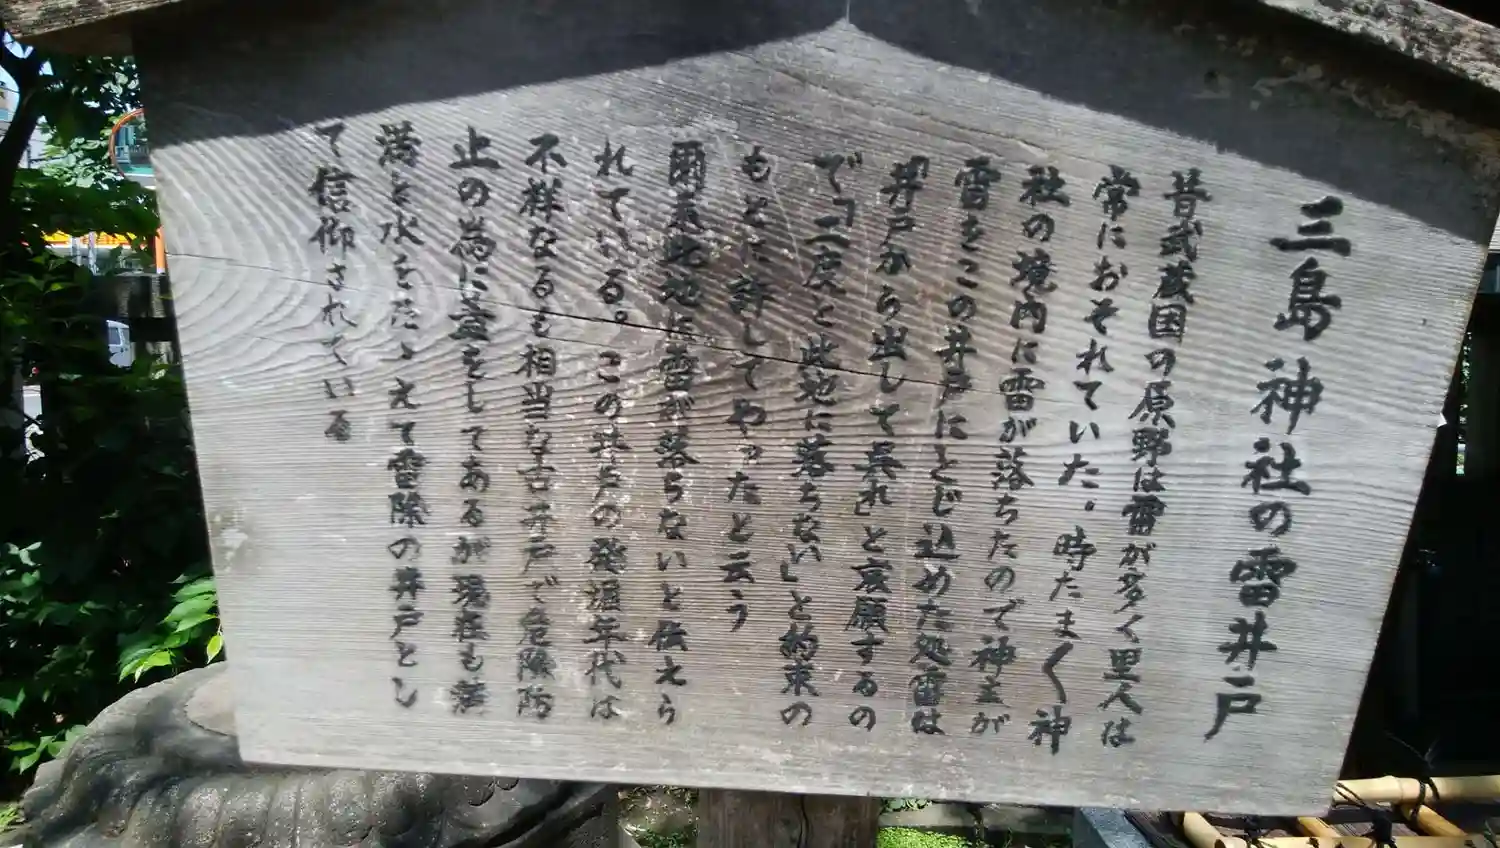 三島神社の雷井戸
昔武蔵国の原野は雷が多く里人は
常におそれていた。時たまく神
社の境内に雷が落ちたので神主が
雷をこの井戸にとじ込めた処雷は
「井戸から出して呉れ」と哀願するの
で「二度と此地に落ちない」と約束の
もとに許してやったと云う
爾来此地に雷が落ちないと伝えら
れている。この井戸の発掘年代は
不祥なるも相当な古井戸で危険防
止の為に蓋をしてあるが現在も満
満と水をたゝえて雷除の井戸とし
て信仰されている